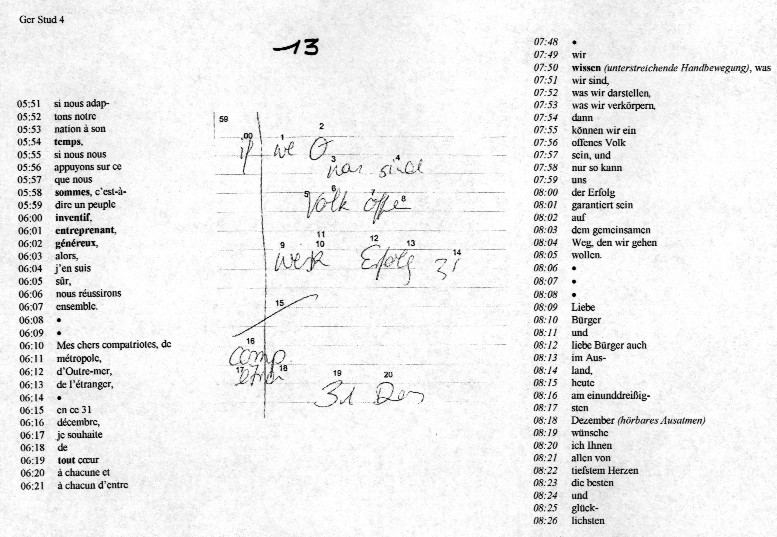 Ger Stud 4
13
05:51 si nous adap-
05:52 tons notre
05:53 nation à son
05:54 temps,
05:55 si nous nous
05:56 appuyons sur ce
05:57 que nous
05:58 sommes, c'est-à-
05:59 dire un peuple
06:00 inventif,
06:01 entreprenant,
06:02 généreux,
06:03 alors,
06:04 j'en suis
06:05 sûr,
06:06 nous réussirons
06:07 ensemble.
06:08 •
06:09 •
06:10 Mes chers compatriotes, de
06:11 métropole,
06:12 d'Outre-mer,
06:13 de l'étranger,
06:14 •
06:15 en ce 31
06:16 décembre,
06:17 je souhaite
06:18 de
06:19 tout cœur
06:20 à chacune et
06:21 à chacun d'entre
59
00 1 2
if we O
3 4
sind
5 6 7 8
Volk offe
11
9 10 12 13 14
Erfolg
15
16
comp
17 18
19 20
31 Dez
07:48 •
07:49 wir
07:50 wissen (unterstreichende Handbewegung), was
07:51 wir sind,
07:52 was wir darstellen,
07:53 was wir verkörpern,
07:54 dann
07:55 können wir ein
07:56 offenes Volk
07:57 sein, und
07:58 nur so kann
07:59 uns
08:00 der Erfolg
08:01 garantiert sein
08:02 auf
08:03 dem gemeinsamen
08:04 Weg, den wir gehen
08:05 wollen.
08:06 •
08:07 •
08:08 •
08:09 Liebe
08:10 Bürger
08:11 und
08:12 liebe Bürger auch
08:13 im Aus-
08:14 land,
08:15 heute
08:16 am einunddreißig-
08:17 sten
08:18 Dezember (hörbares Ausatmen)
08:19 wünsche
08:20 ich Ihnen
08:21 allen von
08:22 tiefstem Herzen
08:23 die besten
08:24 und
08:25 glück-
08:26 lichsten